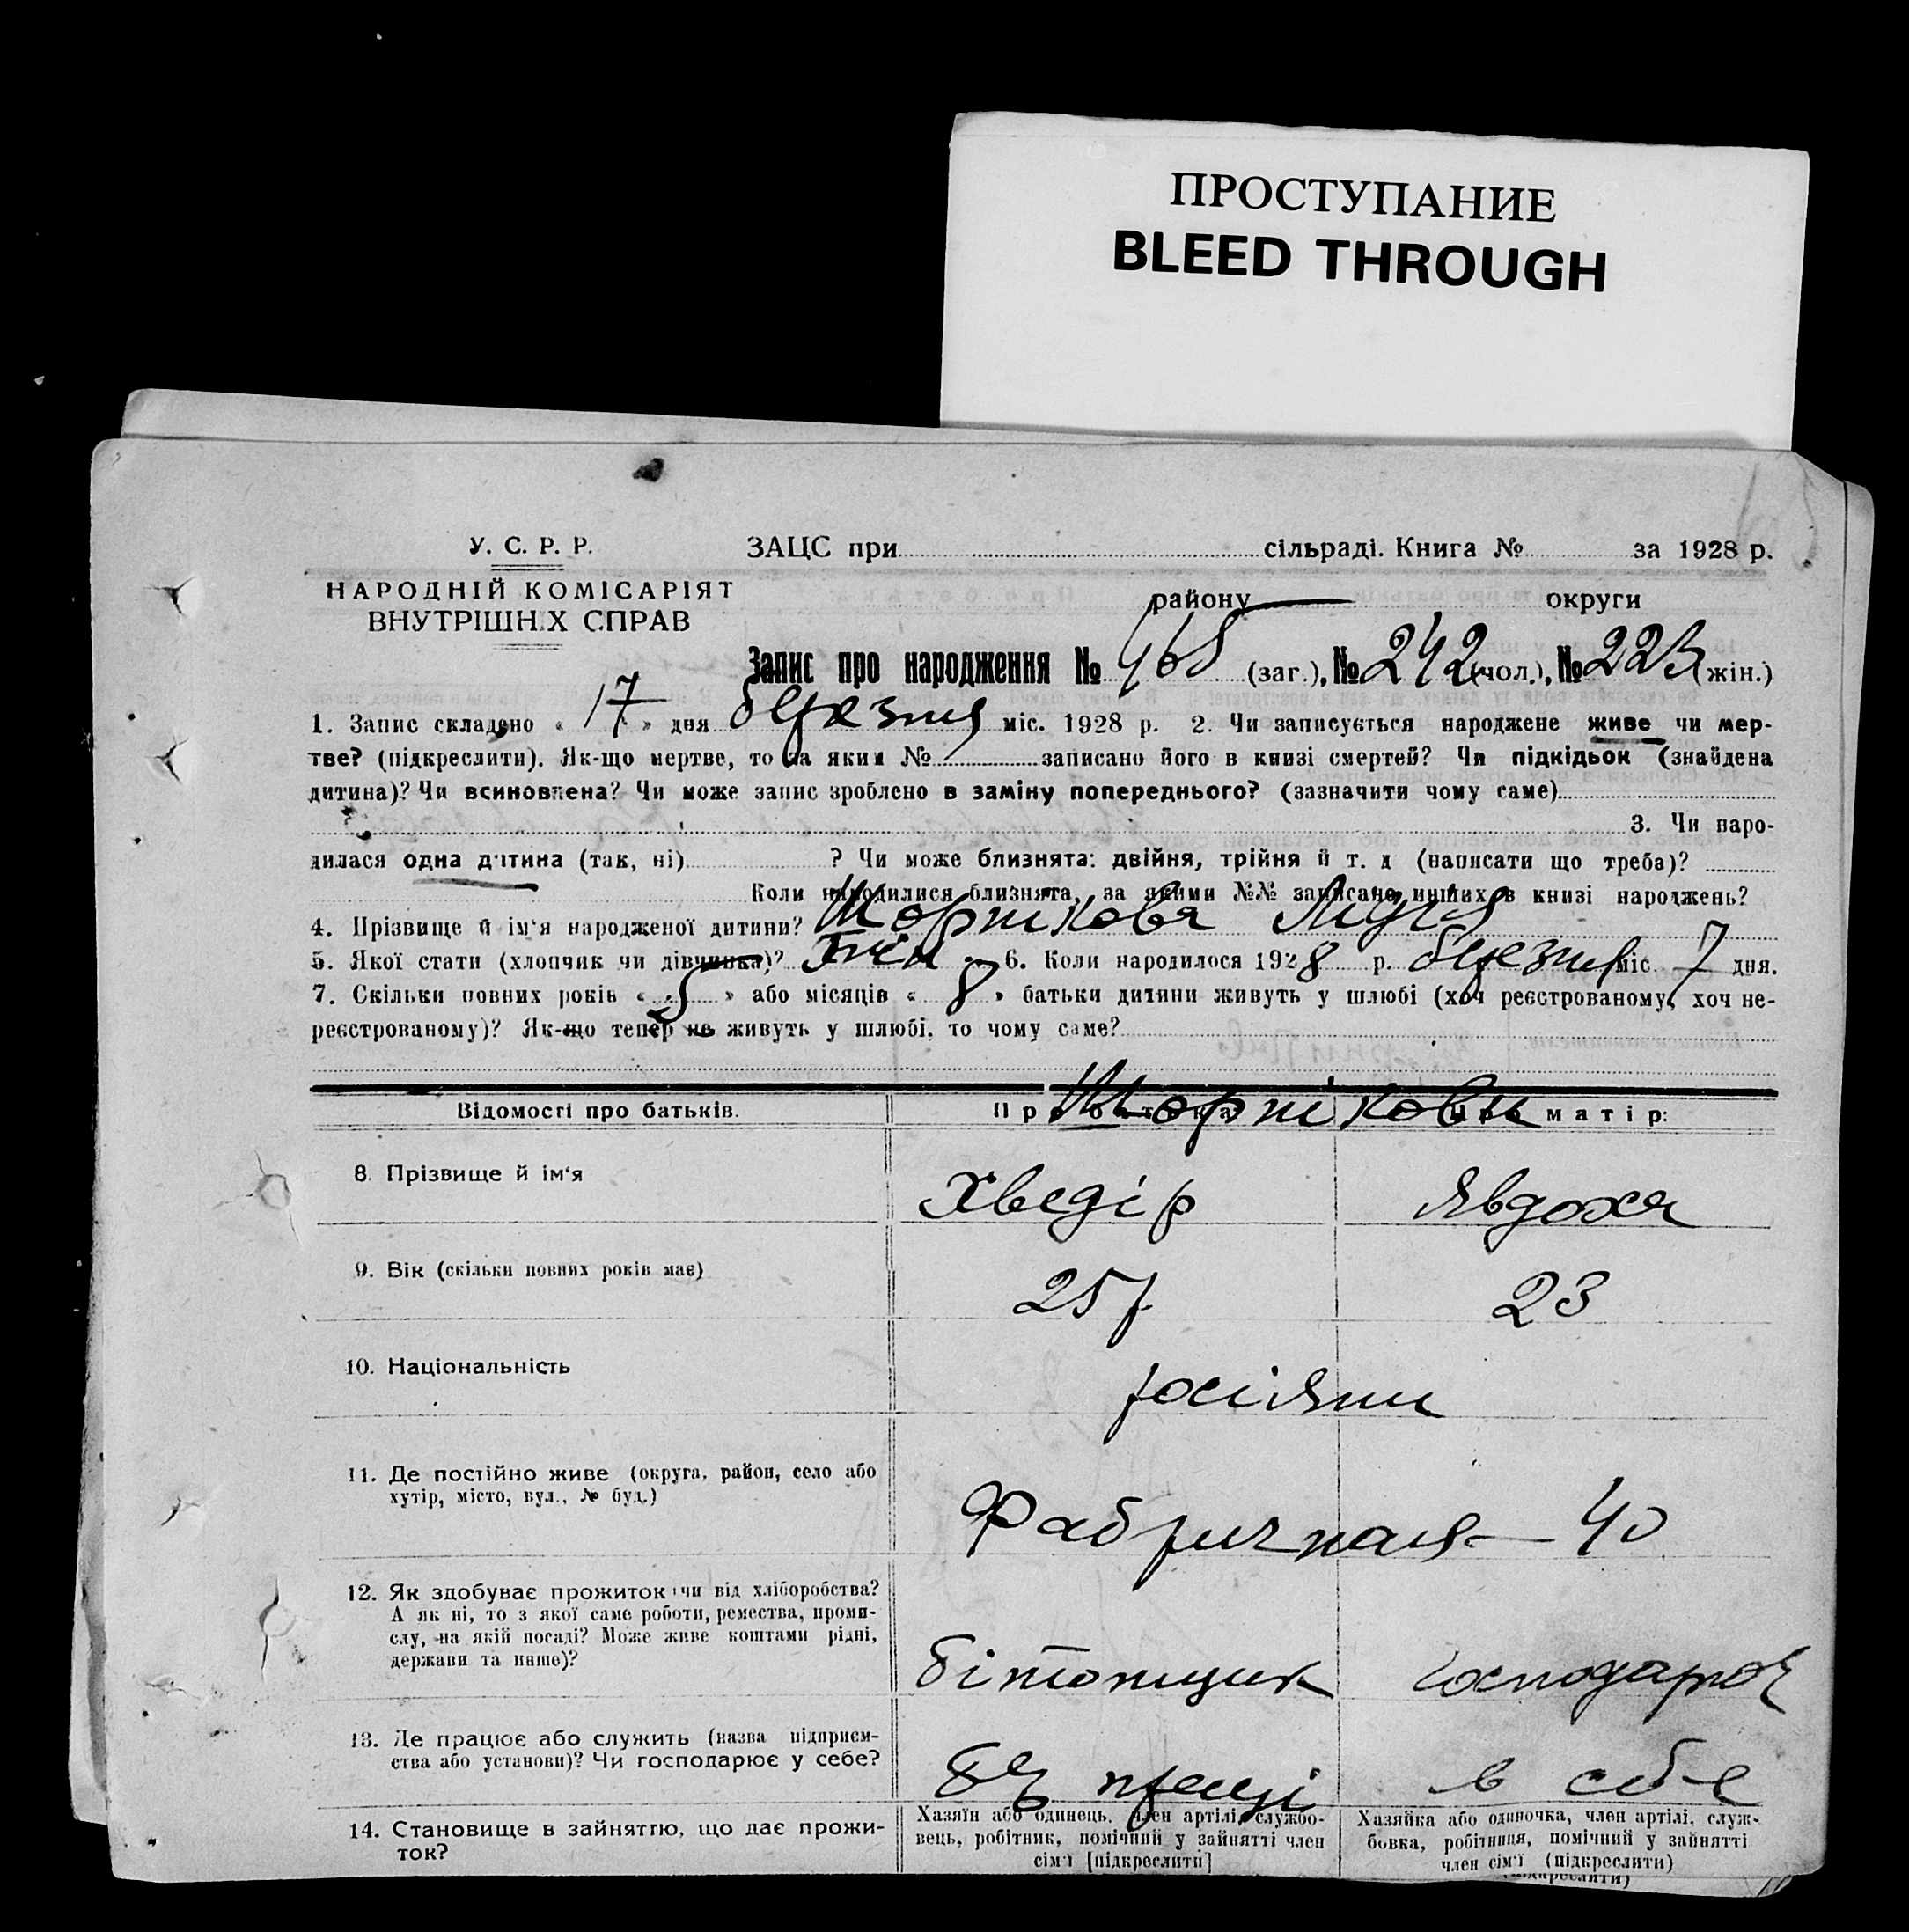 ПРОСТУПАНИЕ
BLEED THROUGH
У. С. Р. Р.
ЗАЦС при сільраді. Книга № за 1928 р.
НАРОДНІЙ КОМІСАРІЯТ
ВНУТРІШНІХ СПРАВ
району округи
Запис про народження № 465 (заг.), № 242 (чол.), № 223 (жін.)
1. Запис складено « 17 » дня березня міс. 1928 р. 2. Чи записується народжене живе чи мер-
тве? (підкреслити). Як-що мертве, то за яким № записано його в книзі смертей? Чи підкідьок (знайдена
дитина)? Чи всиновлена? Чи може запис зроблено в заміну попереднього? (зазначити чому саме)
3. Чи наро-
дилася одна дитина (так, ні) ? Чи може близнята: двійня, трійня й т. д (написати що треба)?
Коли народилися близнята, за якими №№ записано инших в книзі народжень?
4. Прізвище й ім'я народженої дитини? Шорнікова
5. Якої стати (хлопчик чи дівчинка)? жін 6. Коли народилося 1928 р. березня міс. 7 дня.
7. Скільки повних років « 5 » або місяців « 8 » батьки дитини живуть у шлюбі (хоч реєстрованому, хоч не-
реєстрованому)? Як-що тепер не живуть у шлюбі, то чому саме?
Відомості про батьків. Про батька: Про матір:
Шорнікови
8. Прізвище й ім'я Хведір Явдоха
9. Вік (скільки повних років має) 25 р 23
10. Національність росіяни
11. Де постійно живе (округа, район, село або
хутір, місто, вул., № буд.)
Фабричная — 40
12. Як здобуває прожиток чи від хліборобства?
А як ні, то з якої саме роботи, ремества, проми-
слу, на якій посаді? Може живе коштами рідні,
держави та инше)?
бітонщик господарює
13. Де працює або служить (назва підприєм-
ства або установи)? Чи господарює у себе?
без праці в себе
14. Становище в зайняттю, що дає прожи-
ток?
Хазяїн або одинець, член артілі, службо-
вець, робітник, помічний у зайнятті член
сім'ї [підкреслити]
Хазяйка або одиночка, член артілі, служ-
бовка, робітниця, помічний у зайнятті
член сім'ї (підкреслити)
(підкреслити)